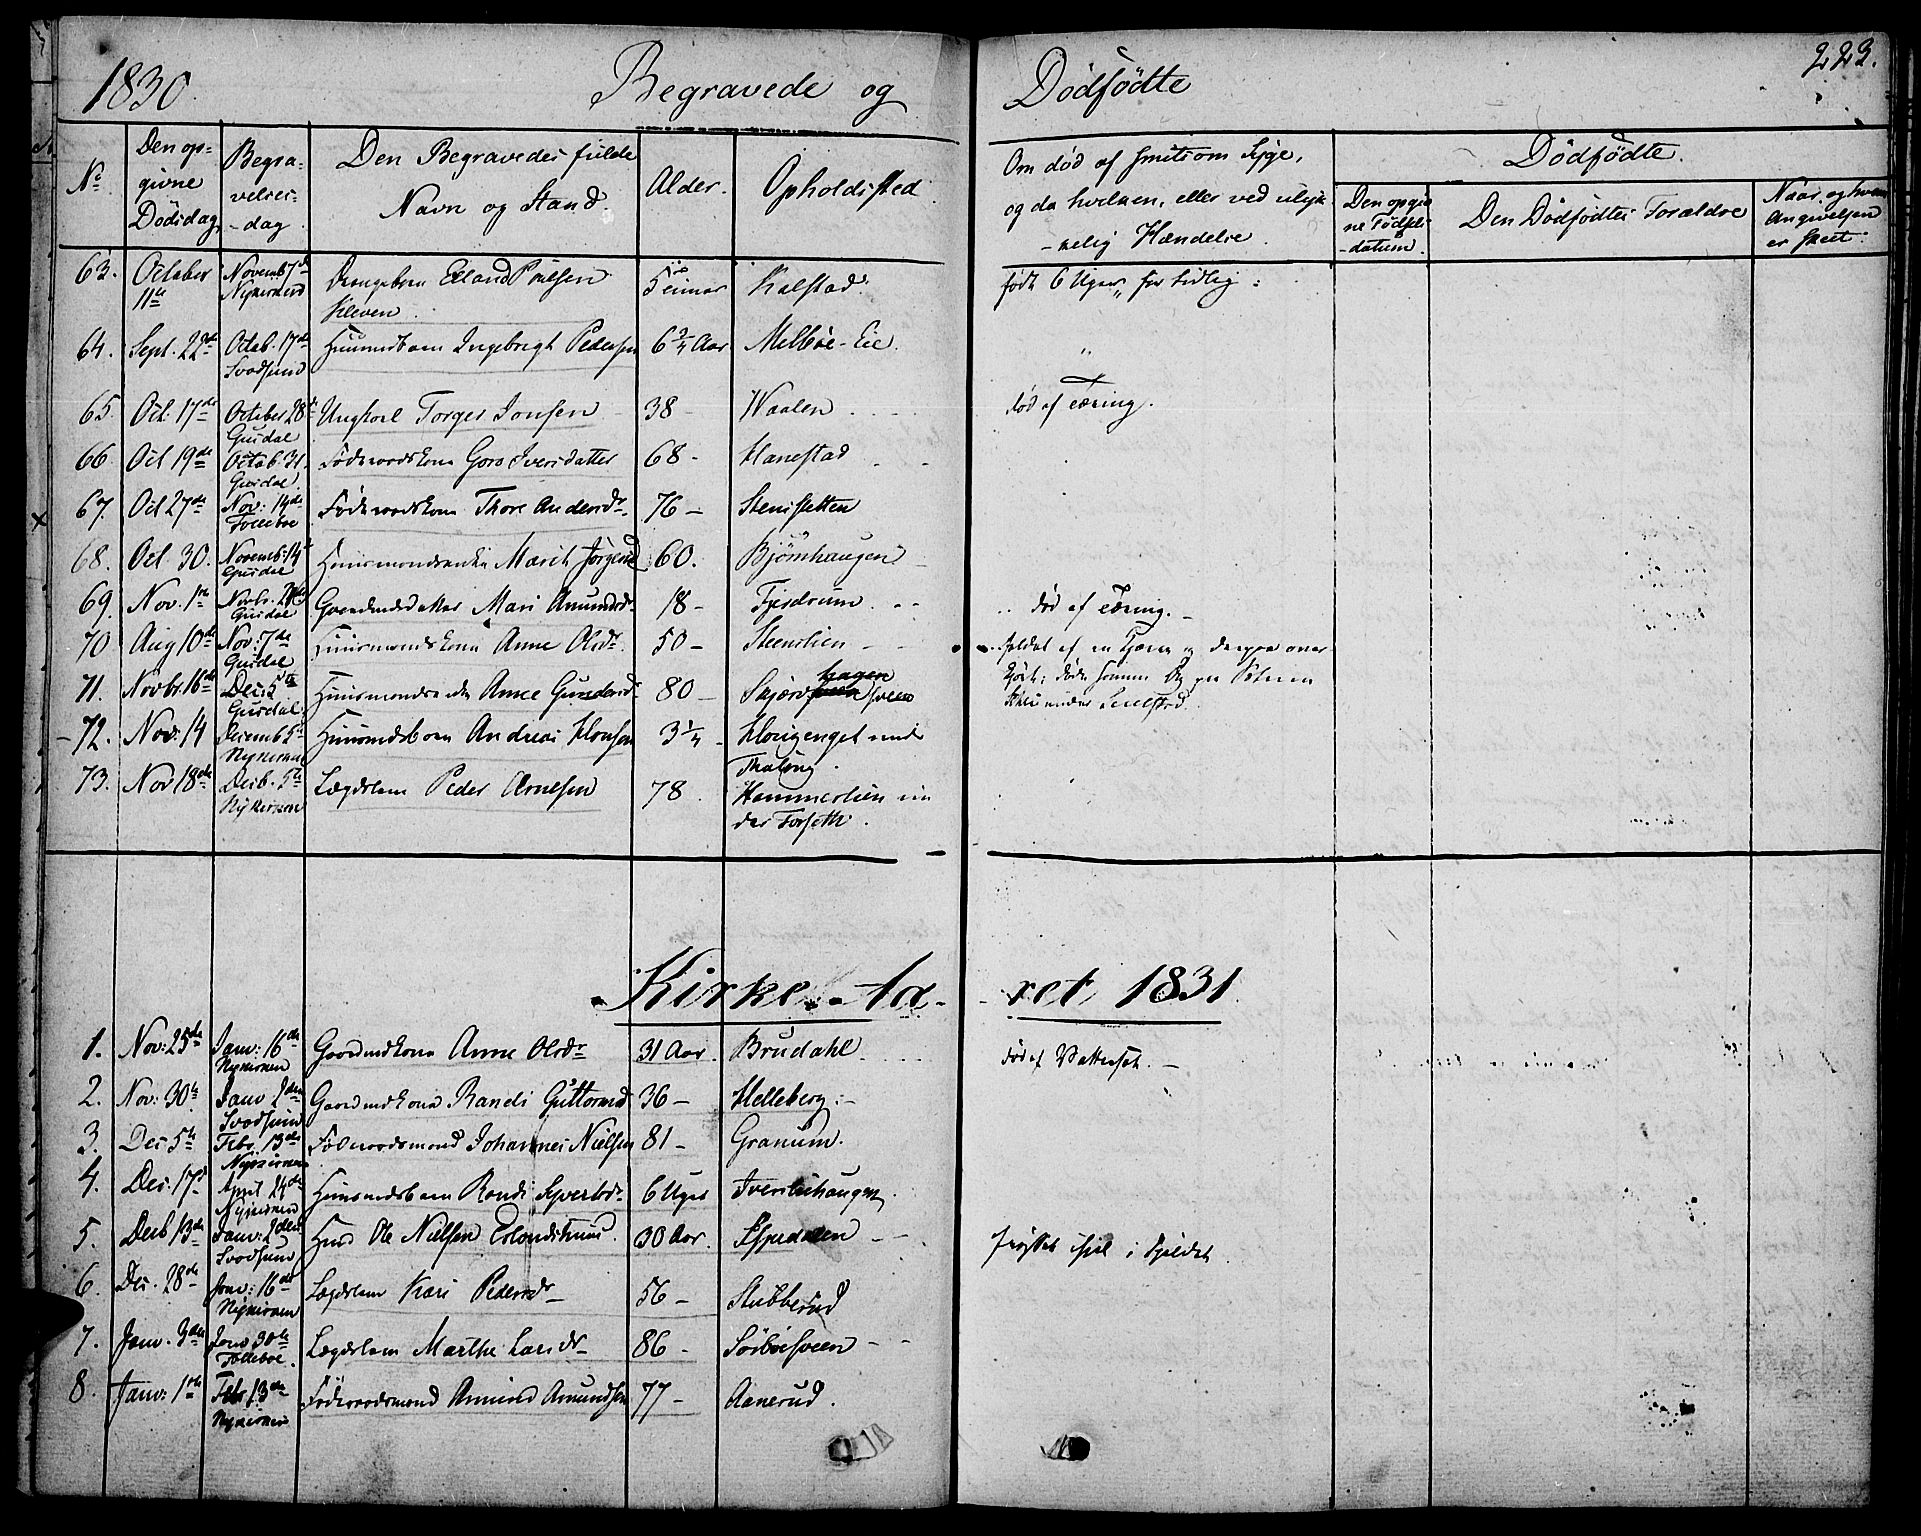 1830. Begravede og Dødfødte 223.
No Den opgivne Dødsdag Begravelses-dag Den Begravedes fulde Navn og Stand Alder. Opholdssted Om død af smitsom Syge, og da hvilken, eller ved ulykkelig Hændelse. Dødfødte.
Den opgivne Fødselsdatum. Den Dødfødtes Forældre Naar og hvem Angivelsen er skeet.
63. October 11te Novemb 7de Nykirken Drengebarn Erland Poulsen Kleven. 5 Kalstad. født 6 Uger for tidlig.
64. Sept. 22de Octob. 17de Svadsum Huusmdsbarn Ingebrigt Pedersen 6 3/4 Aar Melbøe-Eie.
65. Oct. 17de October 28 Gusdal Ungkarl Torger Jonsen 38 - Waalen død af Tæring.
66. Oct 19de Octob. 31. Gusdal. Føderaadskone Goro Iversdatter 68 - Hanestad
67. Oct 27de Nov: 14de Folleboe Føderaadskone Thore Andersdr. 76 - Stensletten
68. Oct. 30. Novemb: 14 Gusdal Huusmandsenke Marit Jørgensd. 60. Bjørnhaugen
69. Nov. 1ste Novbr. Gusdal Gaardmdsdatter Mari Amundsdr 18 - Fjerdrum. død af Tæring.
70 Aug 10de Nov. 7de Gusdal Huusmandskone Anne Olsdr 50 - Steenslien -
71. Novbr. 16de Dec: 5te Gusdal Huusmandsenke Anne Gundersd. 80 - Skjærshagen sveen
72. Nov: 14 Decemb 5te Nykirken Huusmdsbarn Andreas Hansen 3 1/4 - Haugenget under Thaling.
73. Nov 18de Decb. 5te Nykirken Lægdslem Peder Arnesen 78. Hammerlien under Forseth.
Kirke-Aaret 1831.
1. Nov: 25de Janv: 16de Nykirken Gaardmdkone Anne Olsdr 31 Aar. Brudahl. død af Vattersot. -
2. Nov: 30te Janv 2den Svadsum Gaardmdkone Randi Guttormsd 36 - Helleberg. -
3. Dec 5te Febr. 13de Nykirken Føderaadsmand Johannes Nielsen 81 - Granum.
4. Dec: 17de April 24de Nykirken Huusmdsbarn Randi Syvertsdr. 6 Uger Iverslihaugen.
5. Decb 13de Janv: 2den Svadsum Husd Ole Nielsen Erlandstuen. 30 Aar. Espedalen - - frøsset ihjel i Fjeldet.
6. Dec. 28de Janv: 16de Nykirken Lægdslem Kari Pedersdr 56 - Stubberud
7. Janv. 3die Janv 30te Follebøe. Lægdslem Marthe Larsdr 86 - Sørbøesveen -
8. Janv: 1ste Febr. 13de Nykirken Føderaadsmand Amund Amundsen 77 - Aanerud.